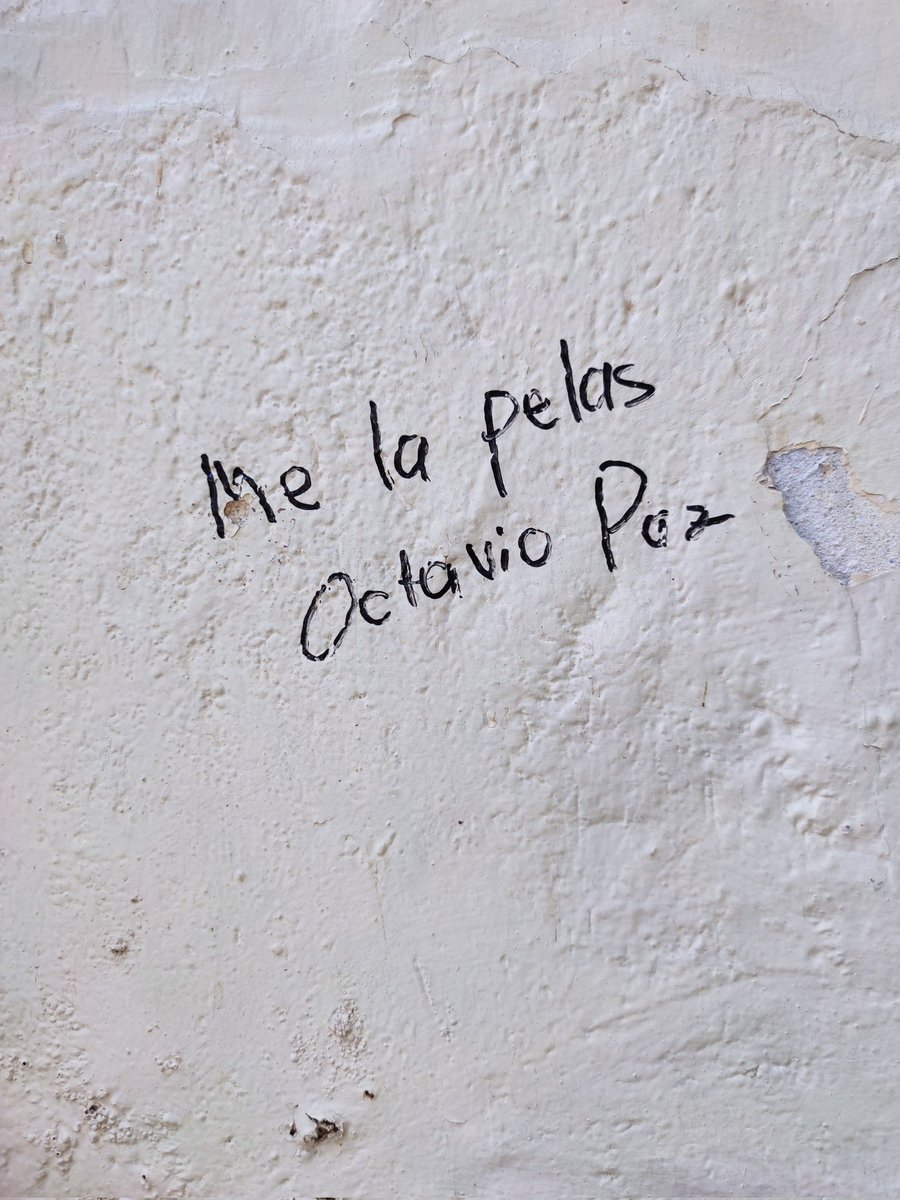 Me la pelas
Octavio Paz